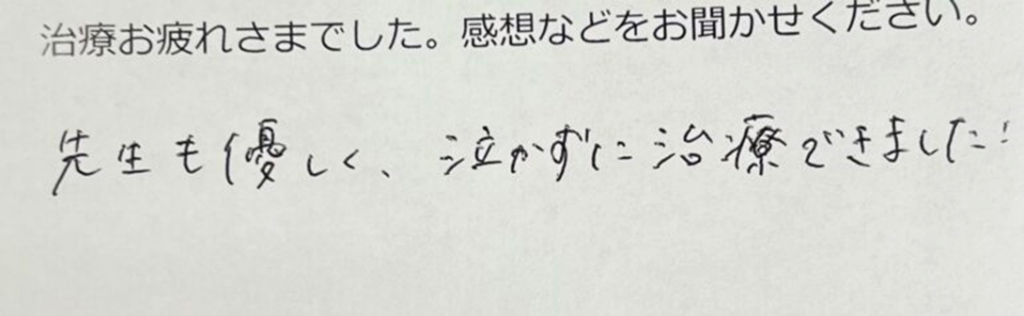 治療お疲れさまでした。感想などをお聞かせください。
先生も優しく、泣かずに治療できました!